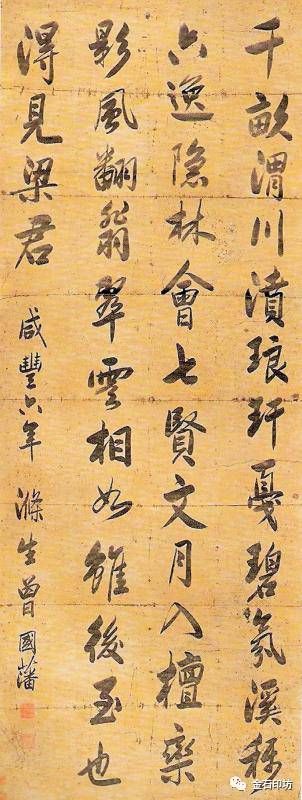 千畝渭川濆琅玕戛碧氛溪稱
六逸隐林會七賢文月入檀欒
影風翻翡翠雲相如雖後至也
得見梁君
咸豐六年 滌生曾國藩
金石印坊